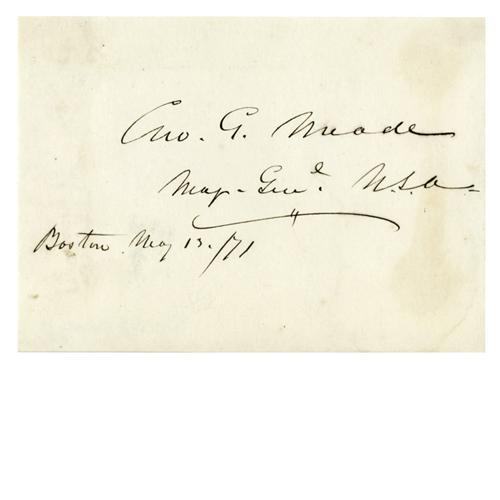 Geo. G. Meade
Maj. Genl. U.S.A.
Boston May 13./71